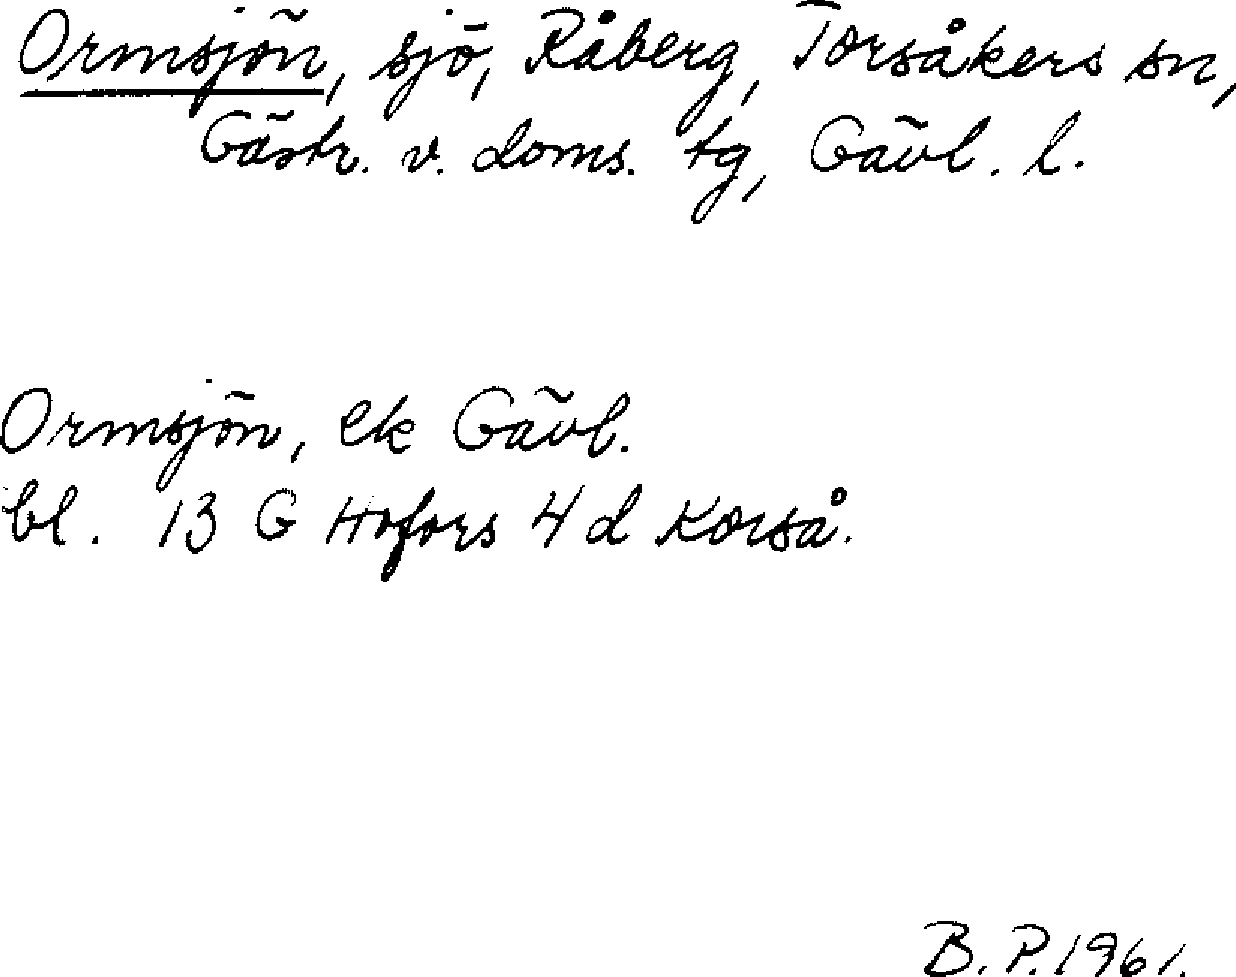 Ormsjön, sjö, Råberg, Torsåkers sn,
Gästr. v. doms. tg, Gävl. l.
Ormsjön, ek Gävl.
bl. 13 G Hofors 4 d Korså.
B. P. 1961.